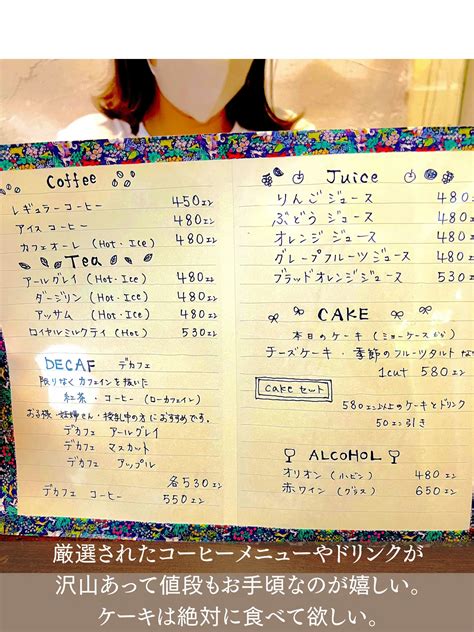 Coffee
レギュラーコーヒー 450エン
アイスコーヒー 480エン
カフェオーレ (Hot・Ice) 480エン
Tea
アールグレイ (Hot・Ice) 480エン
ダージリン (Hot・Ice) 480エン
アッサム (Hot・Ice) 480エン
ロイヤルミルクティ (Hot) 530エン
DECAF デカフェ
限りなくカフェインを抜いた
紅茶・コーヒー (ローカフェイン)
お子様・妊婦さん・授乳中の方におすすめです。
デカフェ アールグレイ
デカフェ マスカット
デカフェ アップル
各530エン
デカフェ コーヒー 550エン
Juice
りんごジュース 480
ぶどうジュース 480
オレンジジュース 480
グレープフルーツジュース 480
ブラッドオレンジジュース 530
CAKE
本日のケーキ (ショーケースから)
チーズケーキ・季節のフルーツタルト な
1cut 580エン
cakeセット
580エン以上のケーキとドリンク
50エン引き
ALCOHOL
オリオン (小ビン) 480エン
赤ワイン (グラス) 650エン
厳選されたコーヒーメニューやドリンクが
沢山あって値段もお手頃なのが嬉しい。
ケーキは絶対に食べて欲しい。